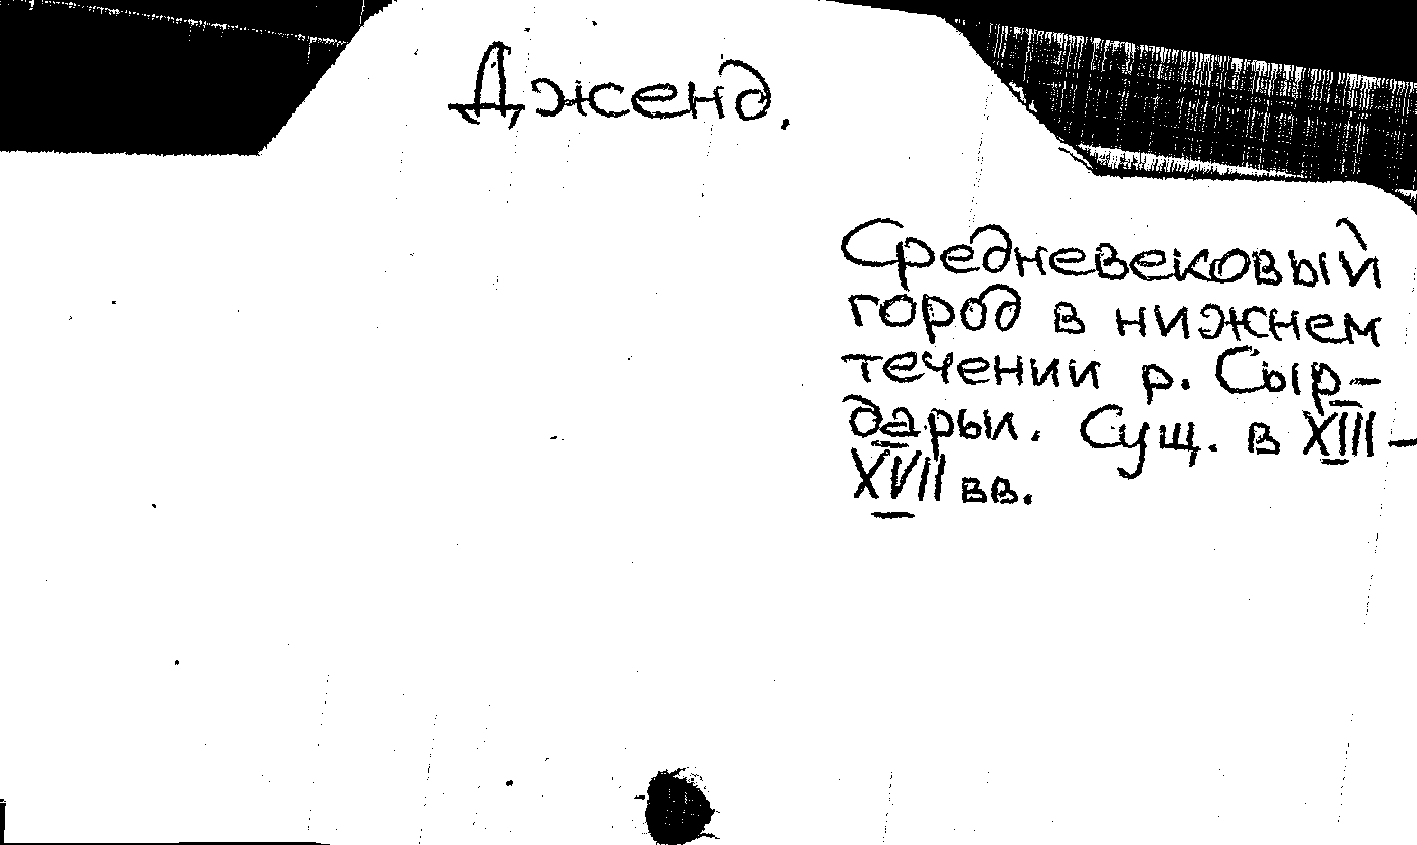 Дженд.
Средневековый
город в нижнем
течении р. Сыр-
дарьи. Сущ. в XIII-
XVII вв.